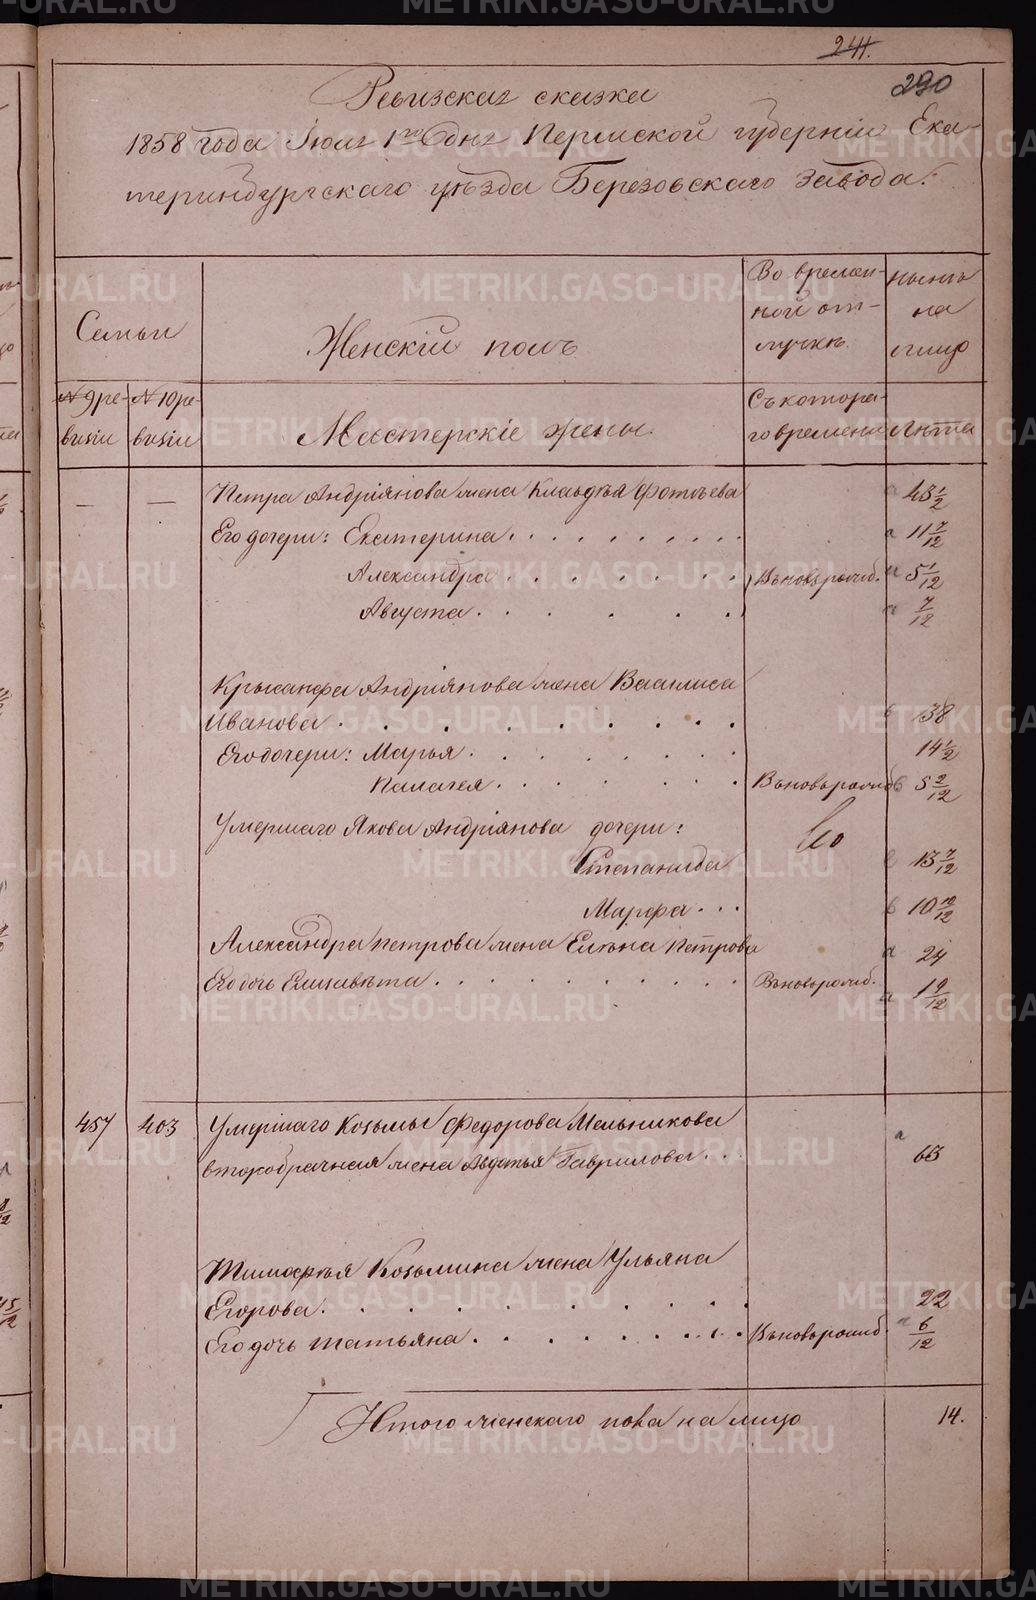 METRIKI.GASO-URAL.RU
241.
290
Ревизская сказка
1858 года Июля 1го дня Пермской губернiи Ека-
теринбургскаго уѣзда Березовскаго завода.
Семьи
Женскiй полъ
Во времен-
ной от-
лучкѣ
Нынѣ
на
лицо
№ 9 ре-
визiи
№ 10 ре-
визiи
Мастерскiе жены.
Съ котора-
го времени
Лѣта
— Петра Андрiянова жена Клавдѣя Фотѣева а 43 1/2
Его дочери: Екатерина а 11 7/12
Александра Вновьрожд. а 5 1/12
Августа а 7/12
Крысанфа Андрiянова жена Василиса
Иванова 38
Его дочери: Марья 14 1/2
Палагея Вновьрожд 5 2/12
Умершаго Якова Андрiянова дочери:
Степанида 13 7/12
Марфа 10
Александра Петрова жена Елѣна Петрова а 24
Его дочь Елисавѣта Вновьрожд. а
457 403 Умершаго Козьмы Федорова Мельникова
второбрачная жена Авдотья Гаврилова а 63
Тимофѣя Козьмина жена Ульяна
Егорова 22
Его дочь Татьяна Вновьрожд. а 6/12
Итого женскаго пола на лицо 14.